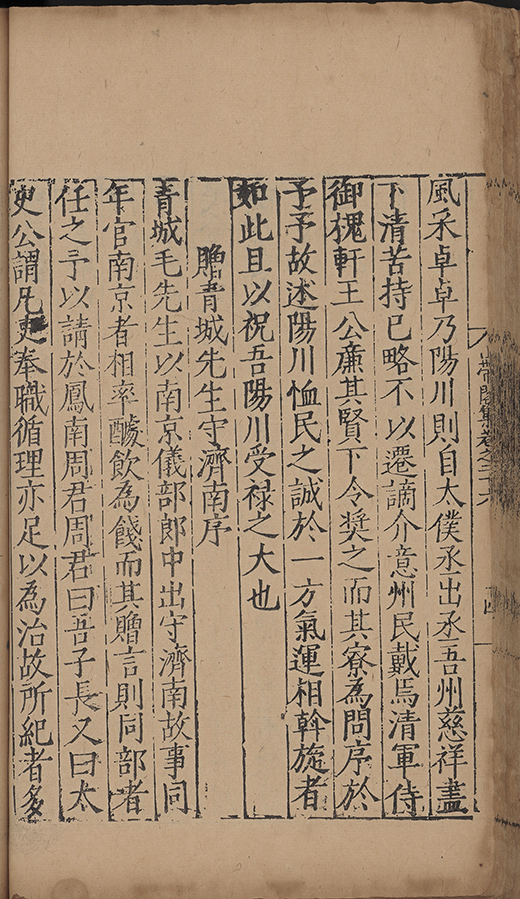 風采卓卓乃陽川則自太僕丞出丞吾州慈祥盡
下清苦持已略不以遷謫介意州民戴焉清軍侍
御槐軒王公廉其賢下令奬之而其寮為問序於
予予故述陽川恤民之誠於一方氣運相斡旋者
如此且以祝吾陽川受禄之大也
贈青城先生守濟南序
青城毛先生以南京儀部郎中出守濟南故事同
年官南京者相率醵飲為餞而其贈言則同部者
任之予以請於鳳南周君周君曰吾子長又曰太
史公謂凡吏奉職循理亦足以為治故所紀者多